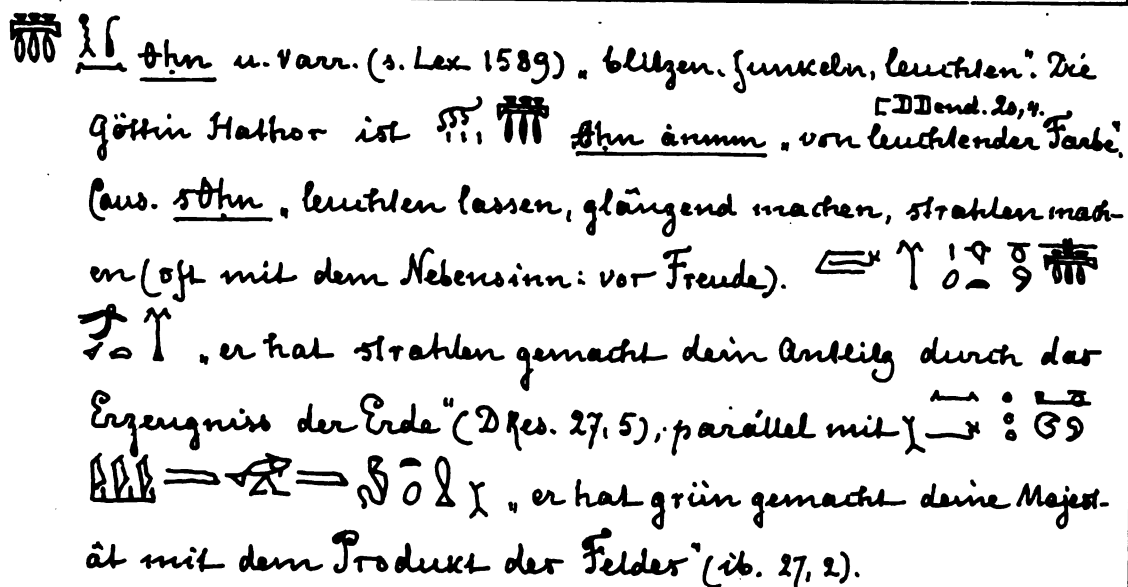 θḥn u. Varr. (s. Lex 1589) „ blitzen. funkeln, leuchten“. Die
[DDend. 20,4.
Göttin Hathor ist θḥn ȧnmm „ von leuchtender Farbe“.
Caus. sθḥn „ leuchten lassen, glänzend machen, strahlen mach-
en (oft mit dem Nebensinn: vor Freude).
„ er hat strahlen gemacht dein Antlitz durch das
Erzeugniss der Erde“ (DRes. 27,5), parallel mit
„ er hat grün gemacht deine Majest-
ät mit dem Produkt der Felder“ (ib. 27, 2).